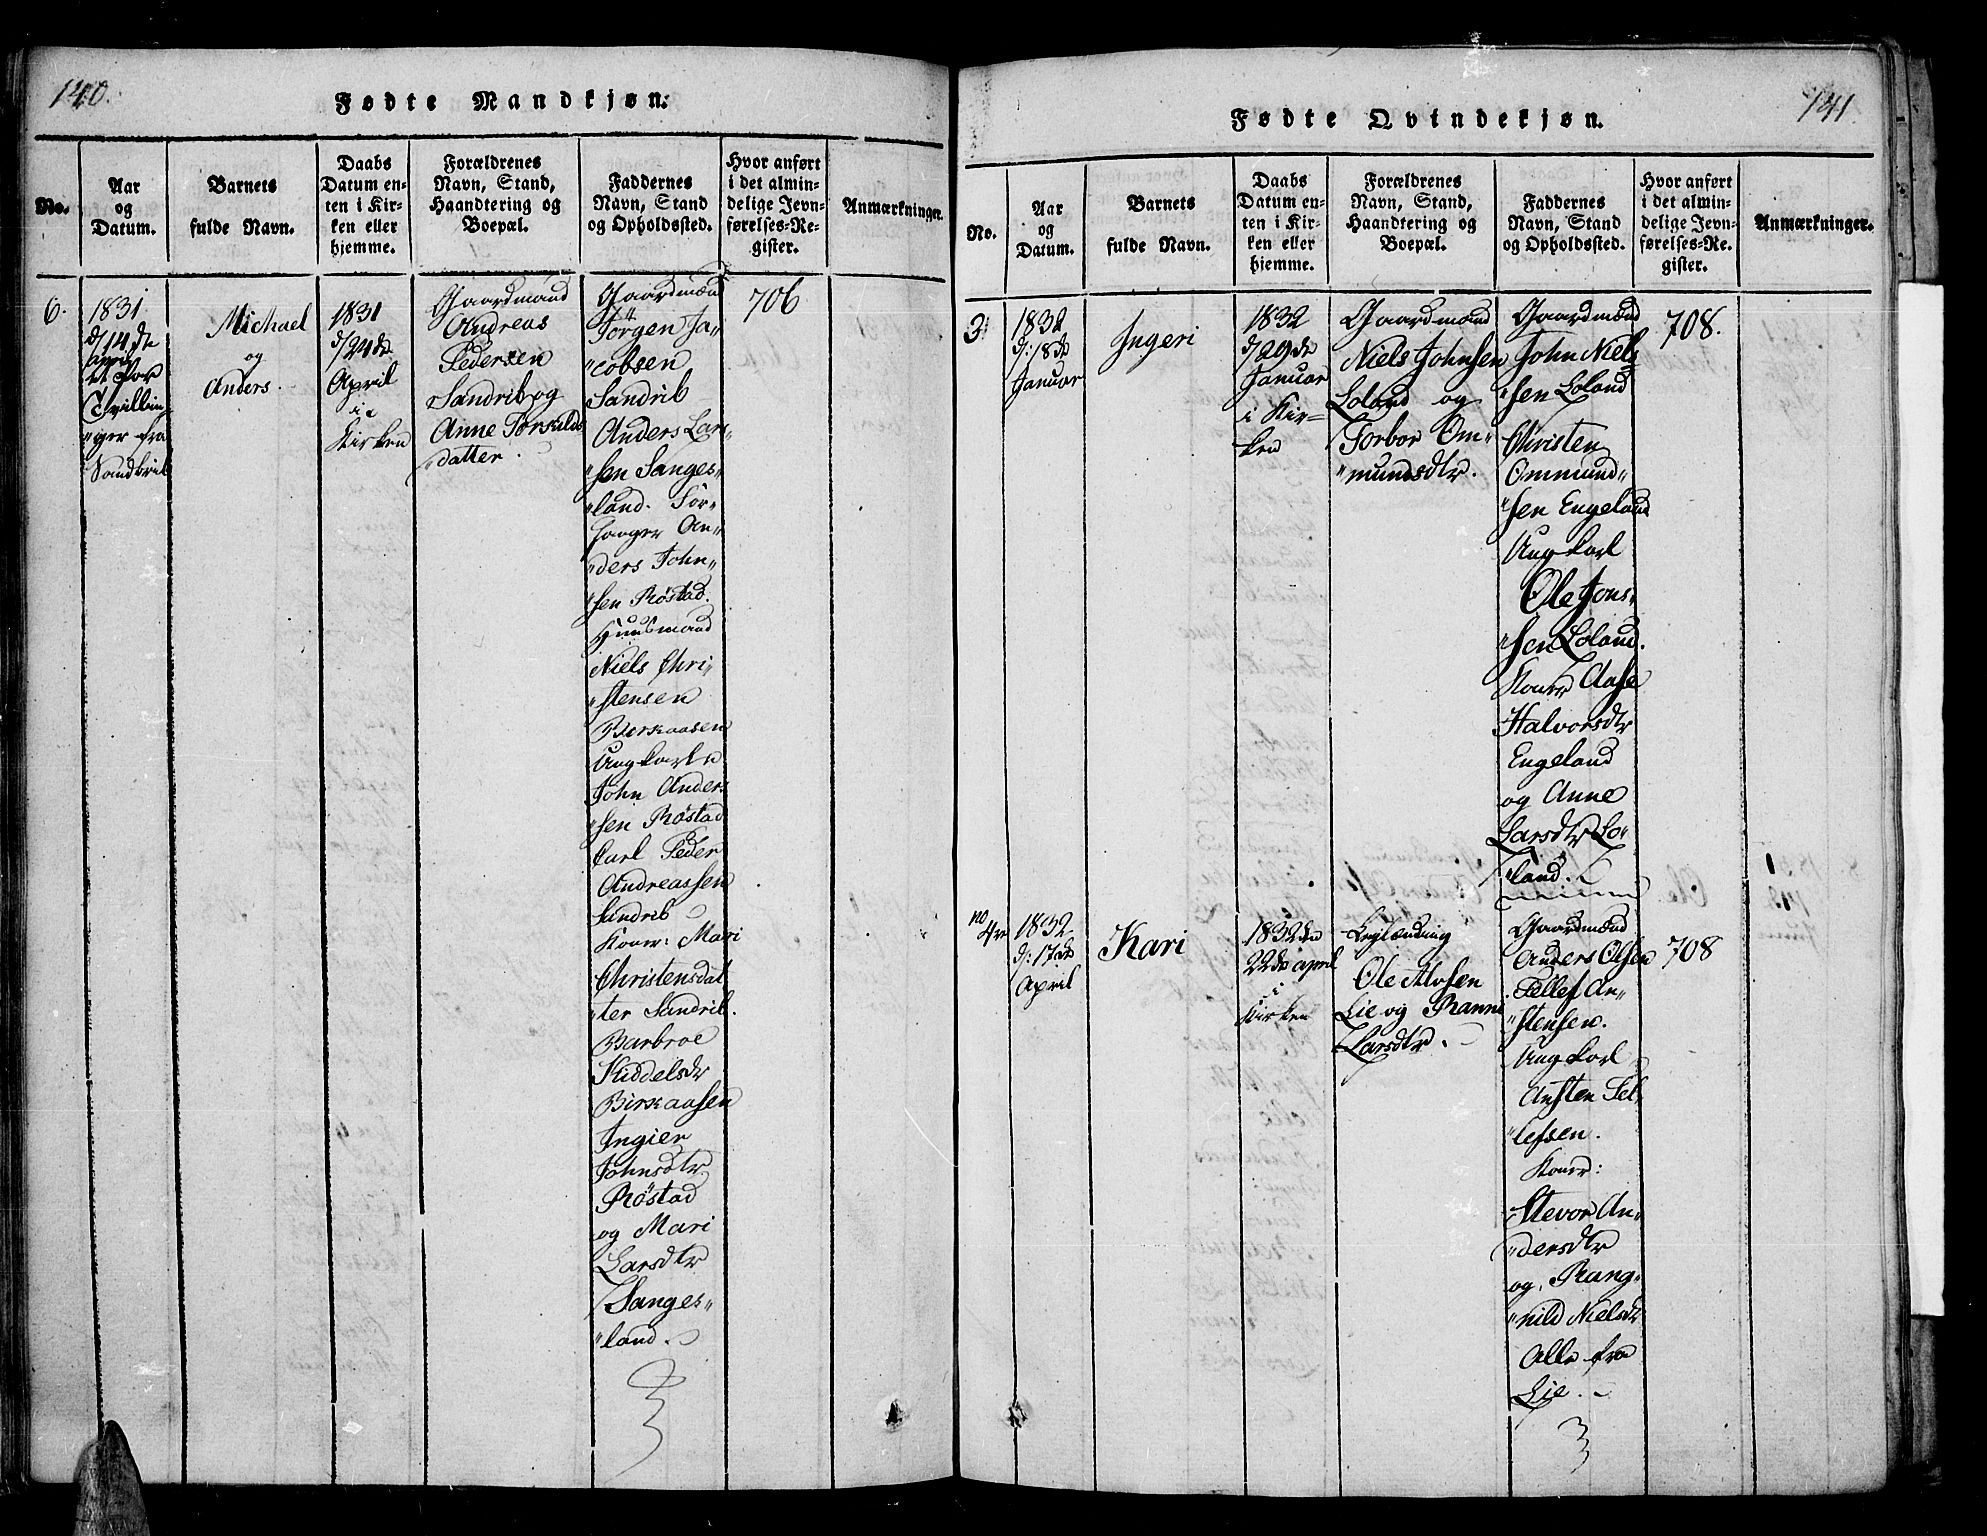 140.
Fødte Mandkjøn.
No.
Aar
og
Datum.
Barnets
fulde Navn.
Daabs
Datum en-
ten i Kir-
ken eller
hjemme.
Forældrenes
Navn, Stand,
Haandtering og
Boepæl.
Faddernes
Navn, Stand
og Opholdssted.
Hvor anført
i det almin-
delige Jevn-
førelses-Re-
gister.
Anmærkninger.
6.
1831
d/14de
april
et Par
Tvillin-
"ger fra
Sandrib
Michael
og
Anders.
1831
d/24de
April
i
Kirken
Gaardmand
Andreas
Pedersen
Sandrib og
Anne Torkilds
"datter.
Gaardmænd
Jørgen Ja-
"cobsen
Sandrib
Anders Lar-
"sen Sanges-
"land. For-
"
ders John-
"sen Røstad.
Huusmand
Niels Chri-
"stensen
Birkaasen
Ungkarle
John Ander-
"sen Røstad
Carl Peder
Andreassen
Sandrib
Koner: Mari
Christensdat
"ter Sandrib.
Barbroe
Kiddelsdr
Birkaasen
Ingier
Johnsdtr
Røstad
og Mari
Larsdtr
Sanges-
"land.
706
141
Fødte Qvindekjøn.
No.
Aar
og
Datum.
Barnets
fulde Navn.
Daabs
Datum en-
ten i Kir-
ken eller
hjemme.
Forældrenes
Navn, Stand,
Haandtering og
Boepæl.
Faddernes
Navn, Stand
og Opholdssted.
Hvor anført
i det almin-
delige Jevn-
førelses-Re-
gister.
Anmærkninger.
3
1832
d: 18de
Januar
Ingeri
1832
d/29de
Januar
i Kir-
ken
Gaardmand
Niels Johnsen
Loland og
Torbor Om-
"mundsdtr.
Gaardmænd
John Niel-
"sen Loland
Christen
Ommund-
"sen Engeland
Ungkarl
Ole Jons-
"sen Loland.
Koner Aase
Halvorsdtr
Engeland
og Anne
Larsdtr Lo-
"land.
708.
no 4re
1832
d: 17de
April
Kari
1832 den
22de april
i
Kirken
Leglænding
Ole Alvsen
Lie og Ranni
Larsdtr.
Gaardmænd
Anders Olsen
Tellef An-
"stensen.
Ungkarl
Ansten Tel-
"lefsen.
Koner:
Stevor An-
"dersdtr
og Rang-
"nild Nielsdr
Alle fra
Lie.
708